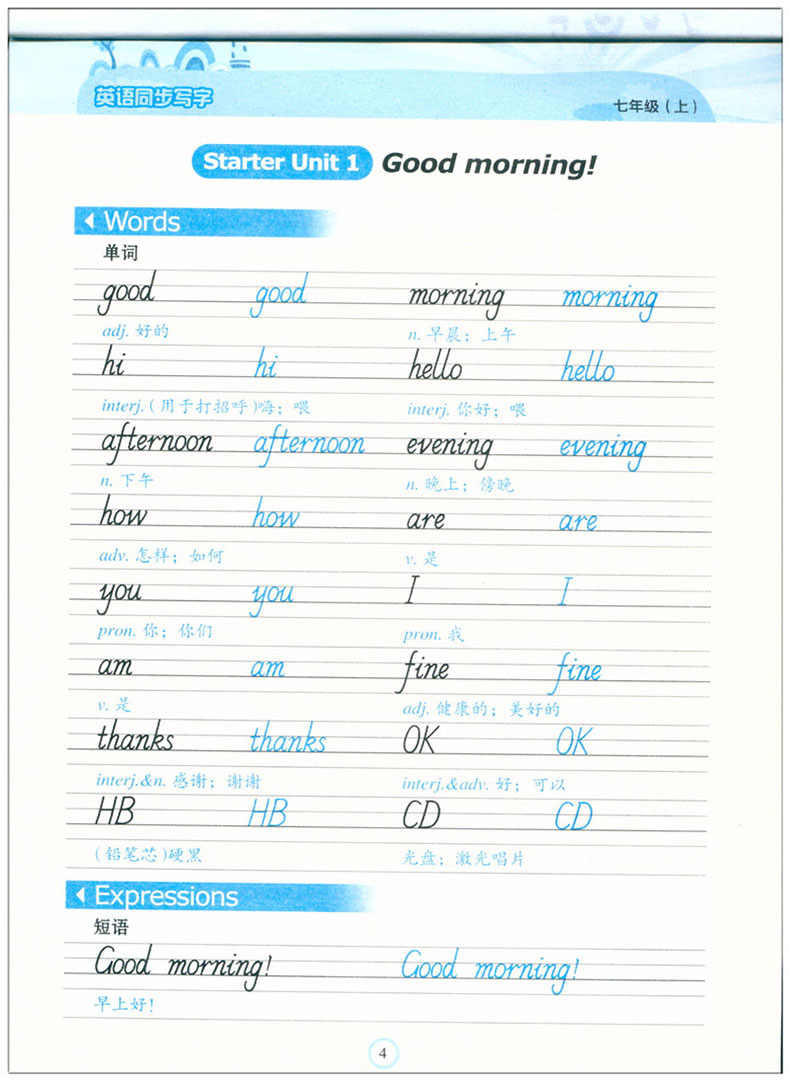 英语同步写字
七年级（上）
Starter Unit 1 Good morning!
Words
单词
good good morning morning
adj. 好的 n. 早晨；上午
hi hi hello hello
interj.（用于打招呼）嗨；喂 interj. 你好；喂
afternoon afternoon evening evening
n. 下午 n. 晚上；傍晚
how how are are
adv. 怎样；如何 v. 是
you you I I
pron. 你；你们 pron. 我
am am fine fine
v. 是 adj. 健康的；美好的
thanks thanks OK OK
interj.&n. 感谢；谢谢 interj.&adv. 好；可以
HB HB CD CD
（铅笔芯）硬黑 光盘；激光唱片
Expressions
短语
Good morning! Good morning!
早上好！
4